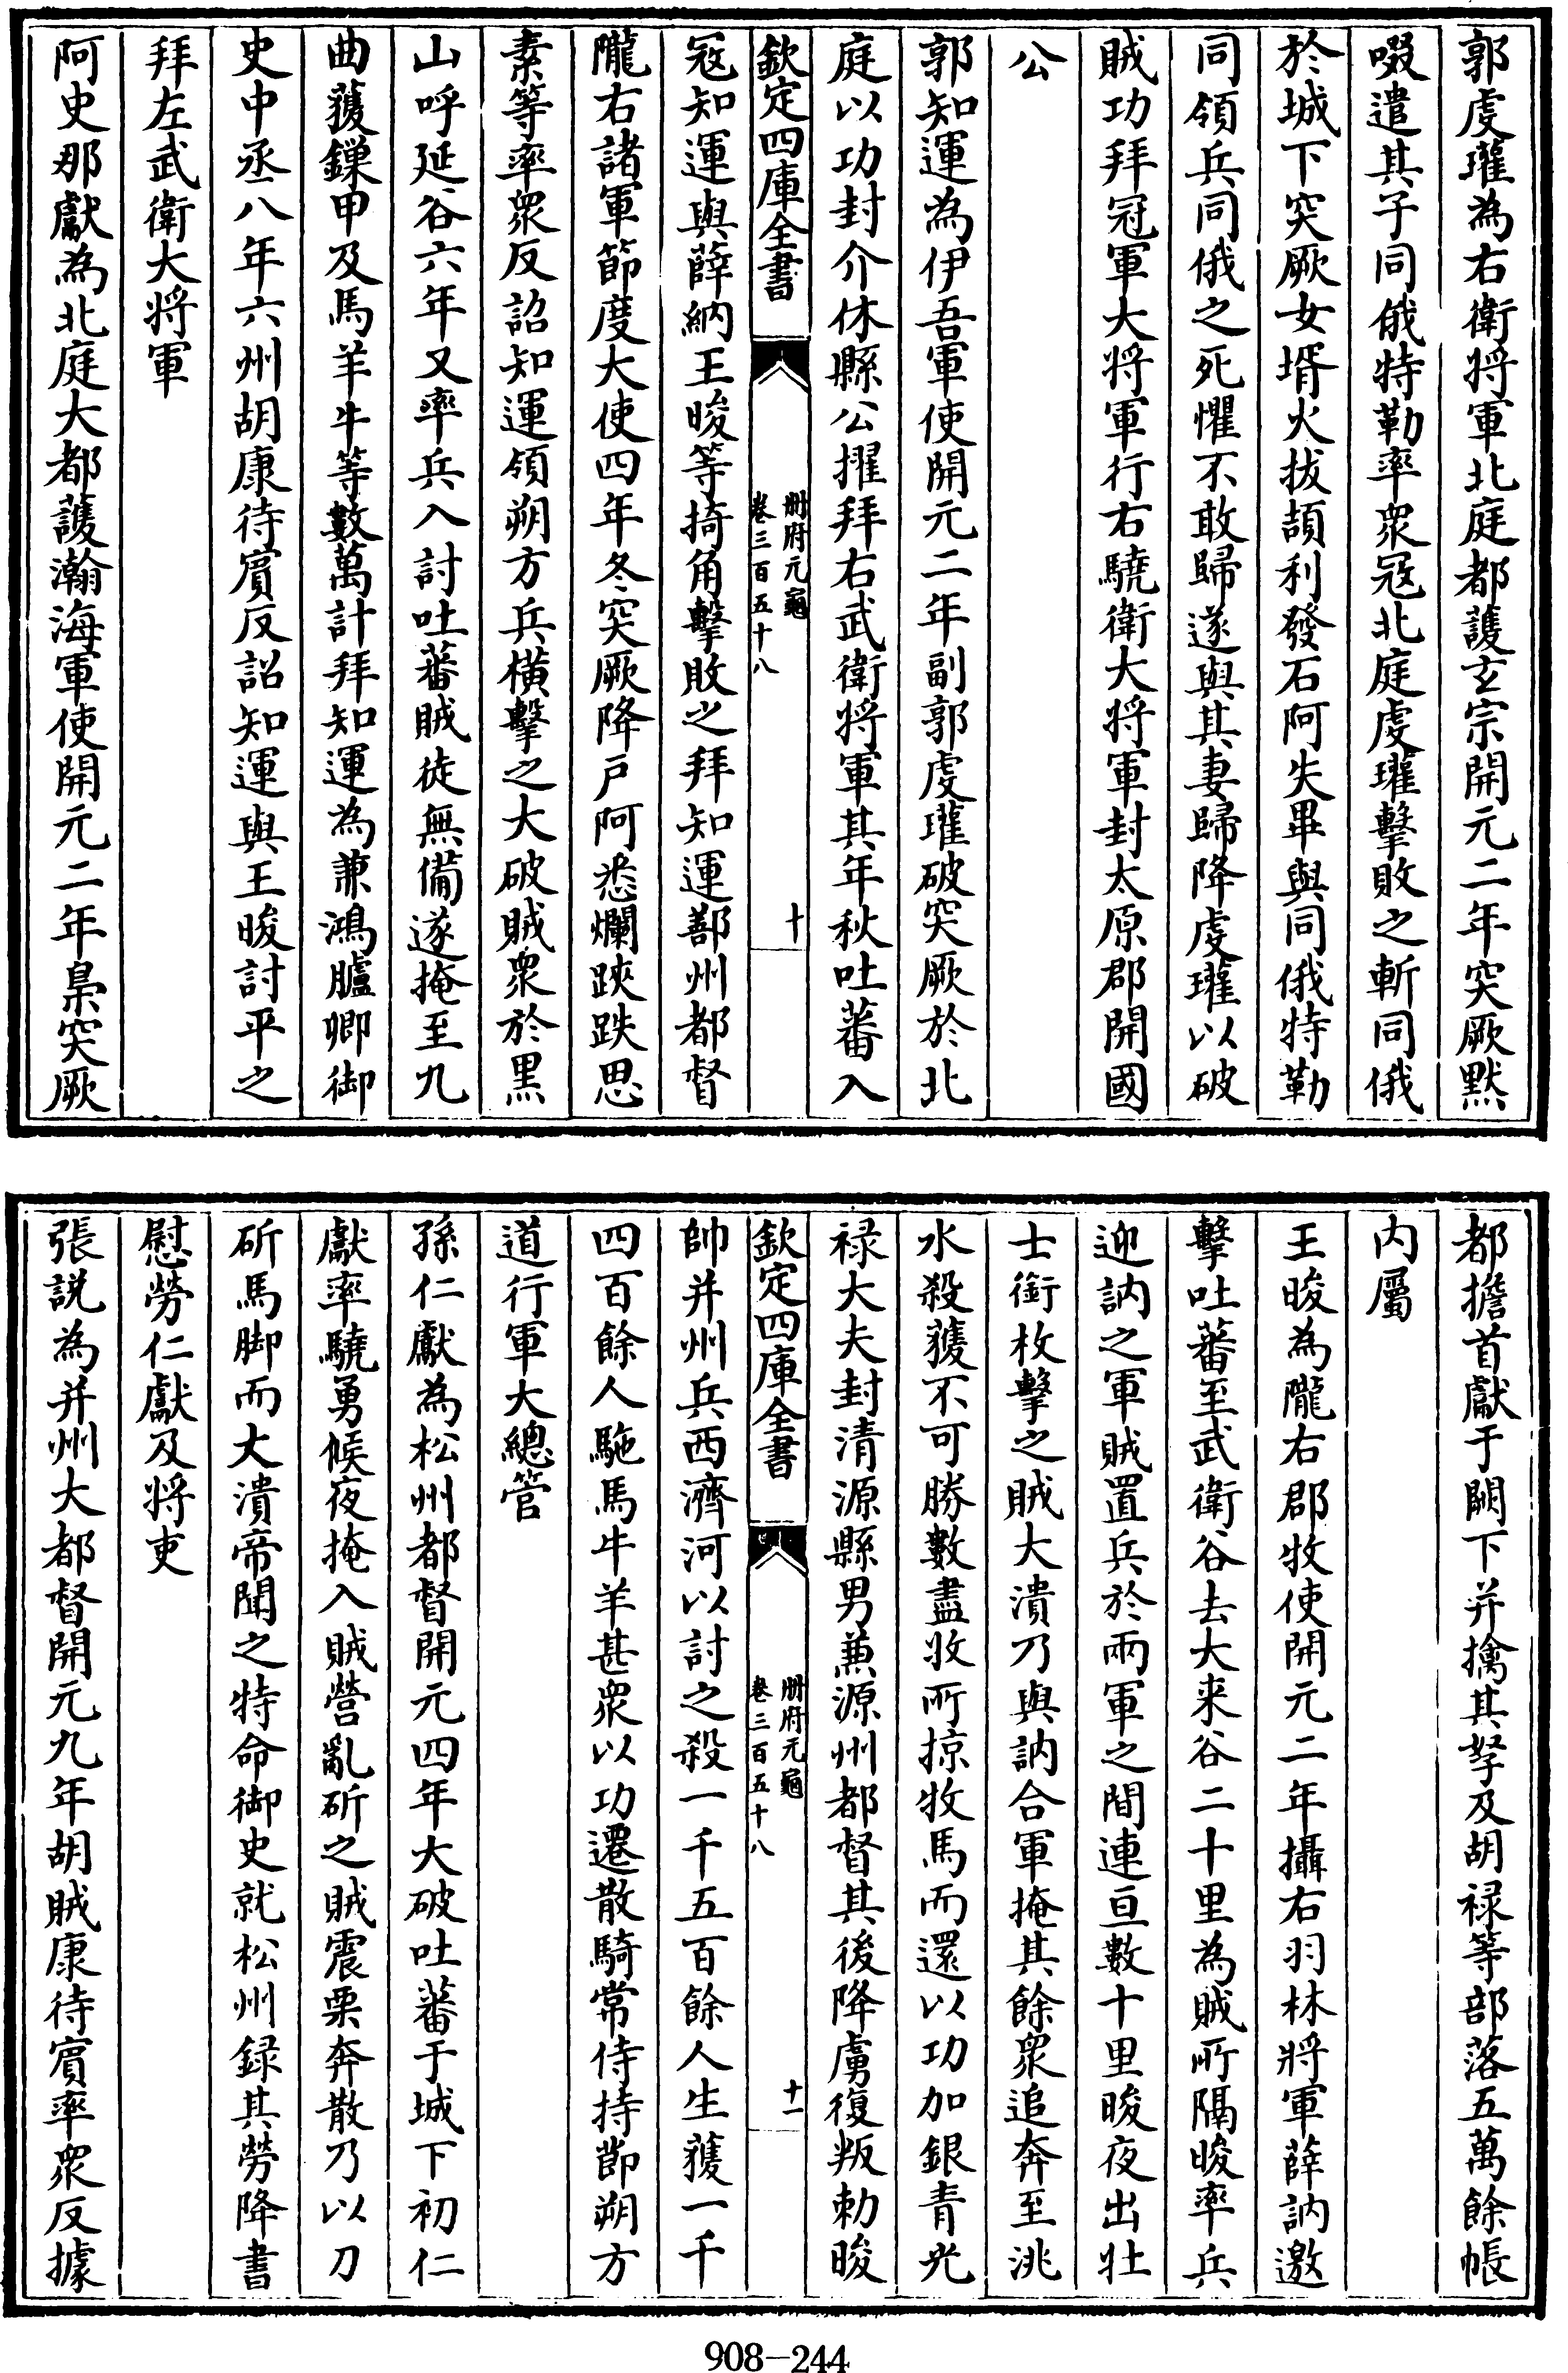 郭虔瓘為右衛将軍北庭都護玄宗開元二年突厥黙
啜遣其子同俄特勒率衆冦北庭虔瓘擊敗之斬同俄
於城下突厥女壻火拔頡利發石阿失畢與同俄特勒
同領兵同俄之死懼不敢歸遂與其妻歸降虔瓘以破
賊功拜冠軍大將軍行右驍衛大將軍封太原郡開國
公
郭知運為伊吾軍使開元二年副郭虔瓘破突厥於北
庭以功封介休縣公擢拜右武衛将軍其年秋吐蕃入
欽定四庫全書
册府元龜
卷三百五十八
十
冦知運與薛納王晙等掎角擊敗之拜知運鄯州都督
隴右諸軍節度大使四年冬突厥降户阿悉爛𨁂跌思
素等率衆反詔知運領朔方兵横擊之大破賊衆於黒
山呼延谷六年又率兵入討吐蕃賊徒無備遂掩至九
曲獲鏁甲及馬羊牛等數萬計拜知運為兼鴻臚卿御
史中丞八年六州胡康待賓反詔知運與王晙討平之
拜左武衛大将軍
阿史那獻為北庭大都護瀚海軍使開元二年梟突厥
都擔首獻于闕下并擒其孥及胡禄等部落五萬餘帳
内屬
王晙為隴右郡牧使開元二年攝右羽林將軍薛訥邀
擊吐蕃至武衛谷去大来谷二十里為賊所隔晙率兵
迎訥之軍賊置兵於兩軍之間連亘數十里晙夜出壮
士銜枚擊之賊大潰乃與訥合軍掩其餘衆追奔至洮
水殺獲不可勝數盡收所掠牧馬而還以功加銀青光
禄大夫封清源縣男兼源州都督其後降虜復叛勅晙
欽定四庫全書
册府元龜
卷三百五十八
十一
帥并州兵西濟河以討之殺一千五百餘人生獲一千
四百餘人駞馬牛羊甚衆以功遷散騎常侍持節朔方
道行軍大總管
孫仁獻為松州都督開元四年大破吐蕃于城下初仁
獻率驍勇候夜掩入賊營亂斫之賊震栗奔散乃以刀
斫馬脚而大潰帝聞之特命御史就松州録其勞降書
慰勞仁獻及将吏
張説為并州大都督開元九年胡賊康待賓率衆反據
908-244